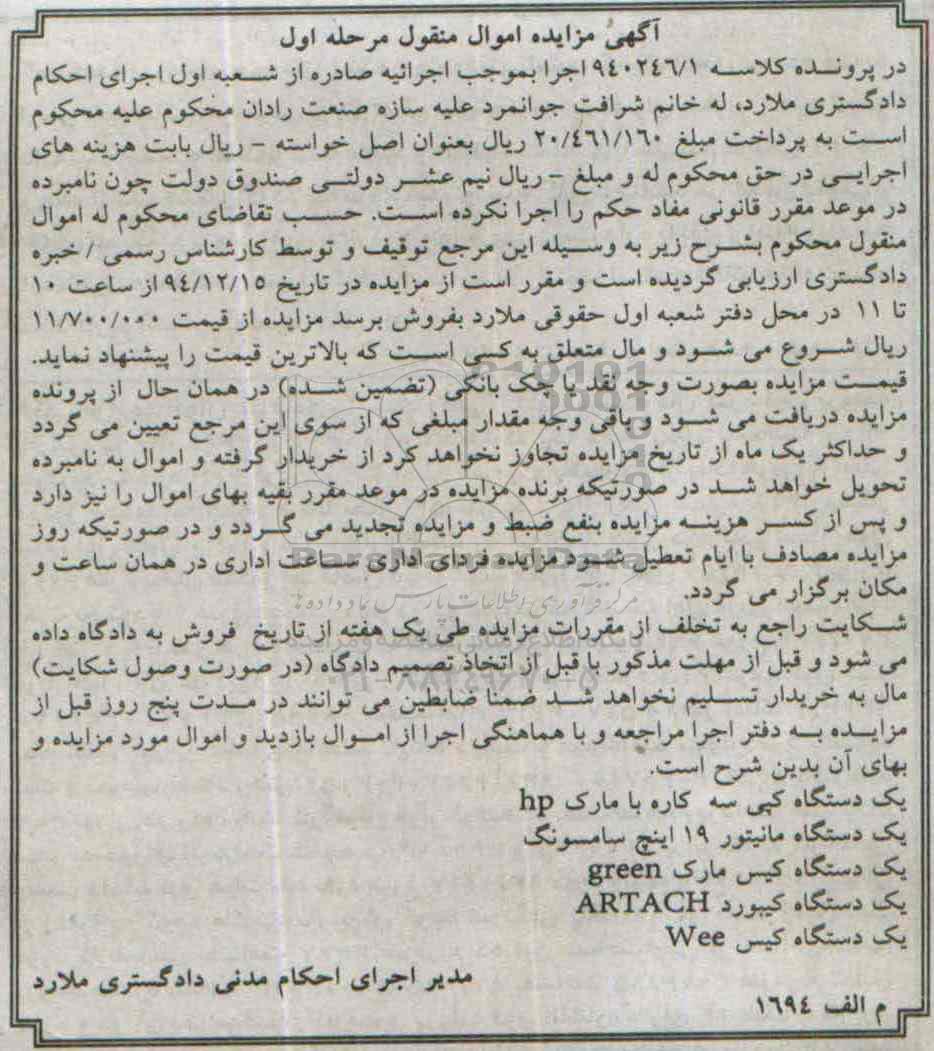 آگهی مزایده اموال منقول مرحله اول
در پرونده کلاسه ۹۴۰۲۴۶/۱ اجرا بموجب اجرائیه صادره از شعبه اول اجرای احکام
دادگستری ملارد، له خانم شرافت جوانمرد علیه سازه صنعت رادان محکوم علیه محکوم
است به پرداخت مبلغ ۲۰/۴۶۱/۱۶۰ ریال بعنوان اصل خواسته - ریال بابت هزینه های
اجرایی در حق محکوم له و مبلغ - ریال نیم عشر دولتی صندوق دولت چون نامبرده
در موعد مقرر قانونی مفاد حکم را اجرا نکرده است. حسب تقاضای محکوم له اموال
منقول محکوم بشرح زیر به وسیله این مرجع توقیف و توسط کارشناس رسمی / خبره
دادگستری ارزیابی گردیده است و مقرر است از مزایده در تاریخ ۹۴/۱۲/۱۵ از ساعت ۱۰
تا ۱۱ در محل دفتر شعبه اول حقوقی ملارد بفروش برسد مزایده از قیمت ۱۱/۷۰۰/۰۰۰
ریال شروع می شود و مال متعلق به کسی است که بالاترین قیمت را پیشنهاد نماید.
قیمت مزایده بصورت وجه نقد یا چک بانکی (تضمین شده) در همان حال از پرونده
مزایده دریافت می شود و باقی وجه مقدار مبلغی که از سوی این مرجع تعیین می گردد
و حداکثر یک ماه از تاریخ مزایده تجاوز نخواهد کرد از خریدار گرفته و اموال به نامبرده
تحویل خواهد شد در صورتیکه برنده مزایده در موعد مقرر بقیه بهای اموال را نیز دارد
و پس از کسر هزینه مزایده بنفع ضبط و مزایده تجدید می گردد و در صورتیکه روز
مزایده مصادف با ایام تعطیل شود مزایده فردای اداری ساعت اداری در همان ساعت و
مکان برگزار می گردد.
شکایت راجع به تخلف از مقررات مزایده طی یک هفته از تاریخ فروش به دادگاه داده
می شود و قبل از مهلت مذکور با قبل از اتخاذ تصمیم دادگاه (در صورت وصول شکایت)
مال به خریدار تسلیم نخواهد شد ضمنا ضابطین می توانند در مدت پنج روز قبل از
مزایده به دفتر اجرا مراجعه و با هماهنگی اجرا از اموال بازدید و اموال مورد مزایده و
بهای آن بدین شرح است.
یک دستگاه کپی سه کاره با مارک hp
یک دستگاه مانیتور ۱۹ اینچ سامسونگ
یک دستگاه کیس مارک green
یک دستگاه کیبورد ARTACH
یک دستگاه کیس Wee
مدیر اجرای احکام مدنی دادگستری ملارد
م الف ۱۶۹۴
ParsNamadData
مرکز فرآوری اطلاعات پارس نماد داده ها